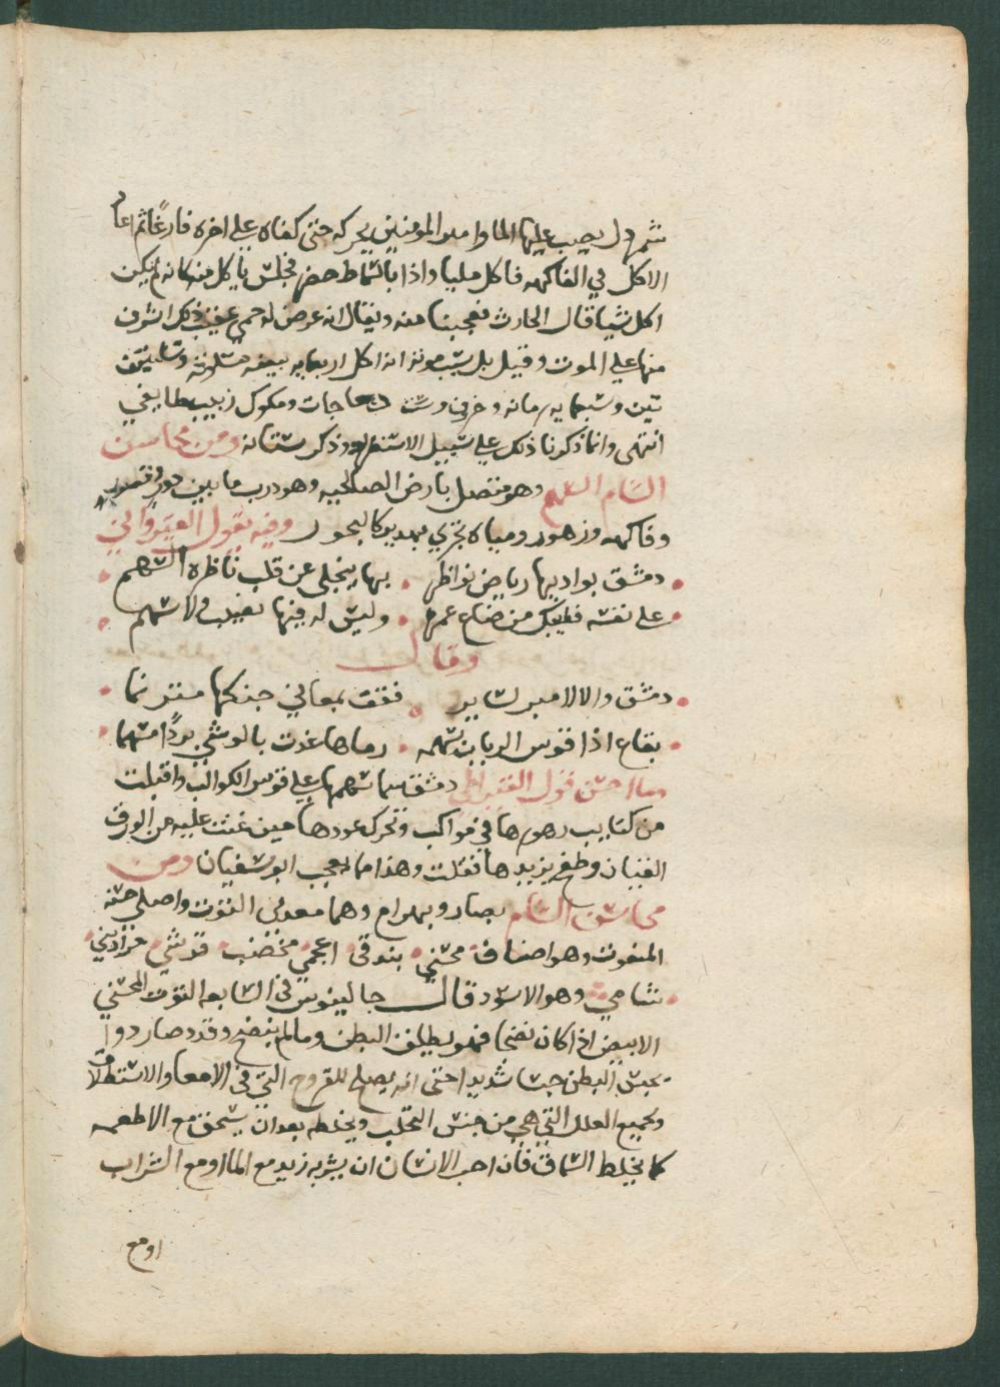 شمردل يصب عليها الما وامير المومنين يحركه حتى كفاه على اخره فارغا ثم اعاد
الاكل في الفاكهه فاكل مليا واذا بالسماط حضر فجلس ياكل منه كانه لم يكن
اكل شيا قال الحارث فعجبنا منه ويقال انه عرض له حمى عقيب ذلك اشرف
منها على الموت وقيل بل سبب موته انه اكل اربعمايه بيضه مسلوقه وسلتين
تين وسبعمايه رمانه وخروف وست دجاجات ومكوك زبيب طايفي
انتهى وانما ذكرنا ذلك على سبيل الاستطراد وذكر بستانه ومن محاسن
الشام السهم وهو متصل بارض الصالحيه وهو درب ما بين دور وقصور
وفاكهه وزهور ومياه تجري بهدير كالبحور وفيه يقول القيرواني
دمشق بواديها رياض نواظر بها ينجلي عن قلب ناظره الهم
على نفسه فليبك من ضاع عمره وليس له فيها نصيب ولا سهم
وقال
دمشق فقف بمعاني جنكها مترنما
بقاع اذا قوس الرباب سهمه رماها غدت بالوشي بردا مسهما
ما احسن قول القيراطي دمشق سما سهمها على قوس الكواكب واقبلت
من كتايب زهرها في مواكب وتحرك عودها حين غنت عليه من الورق
القينان وطفح يزيدها فقلت وهذا مما يعجب ابو سفيان ومن
محاسن الشام وهما معدن التوت واصلي حسنه
المنعوت وهو اصناف محسني بندقي اعجمي مخضب قرشي
شامي وهو الاسود قال جالينوس في السابعه التوت المحسني
الابيض اذا كان نضجا فهو يطلق البطن وما لم ينضج وقدد صار دوا
يحبس البطن حبسا شديدا حتى انه يصلح للقروح التي في الامعا والاستطلاق
وجميع العلل التي هي من جنس التحلب ويخلط بعد ان يسحق مع الاطعمه
كما يخلط السماق فان احب الانسان ان يشربه زيد مع الما او مع الشراب
او مع